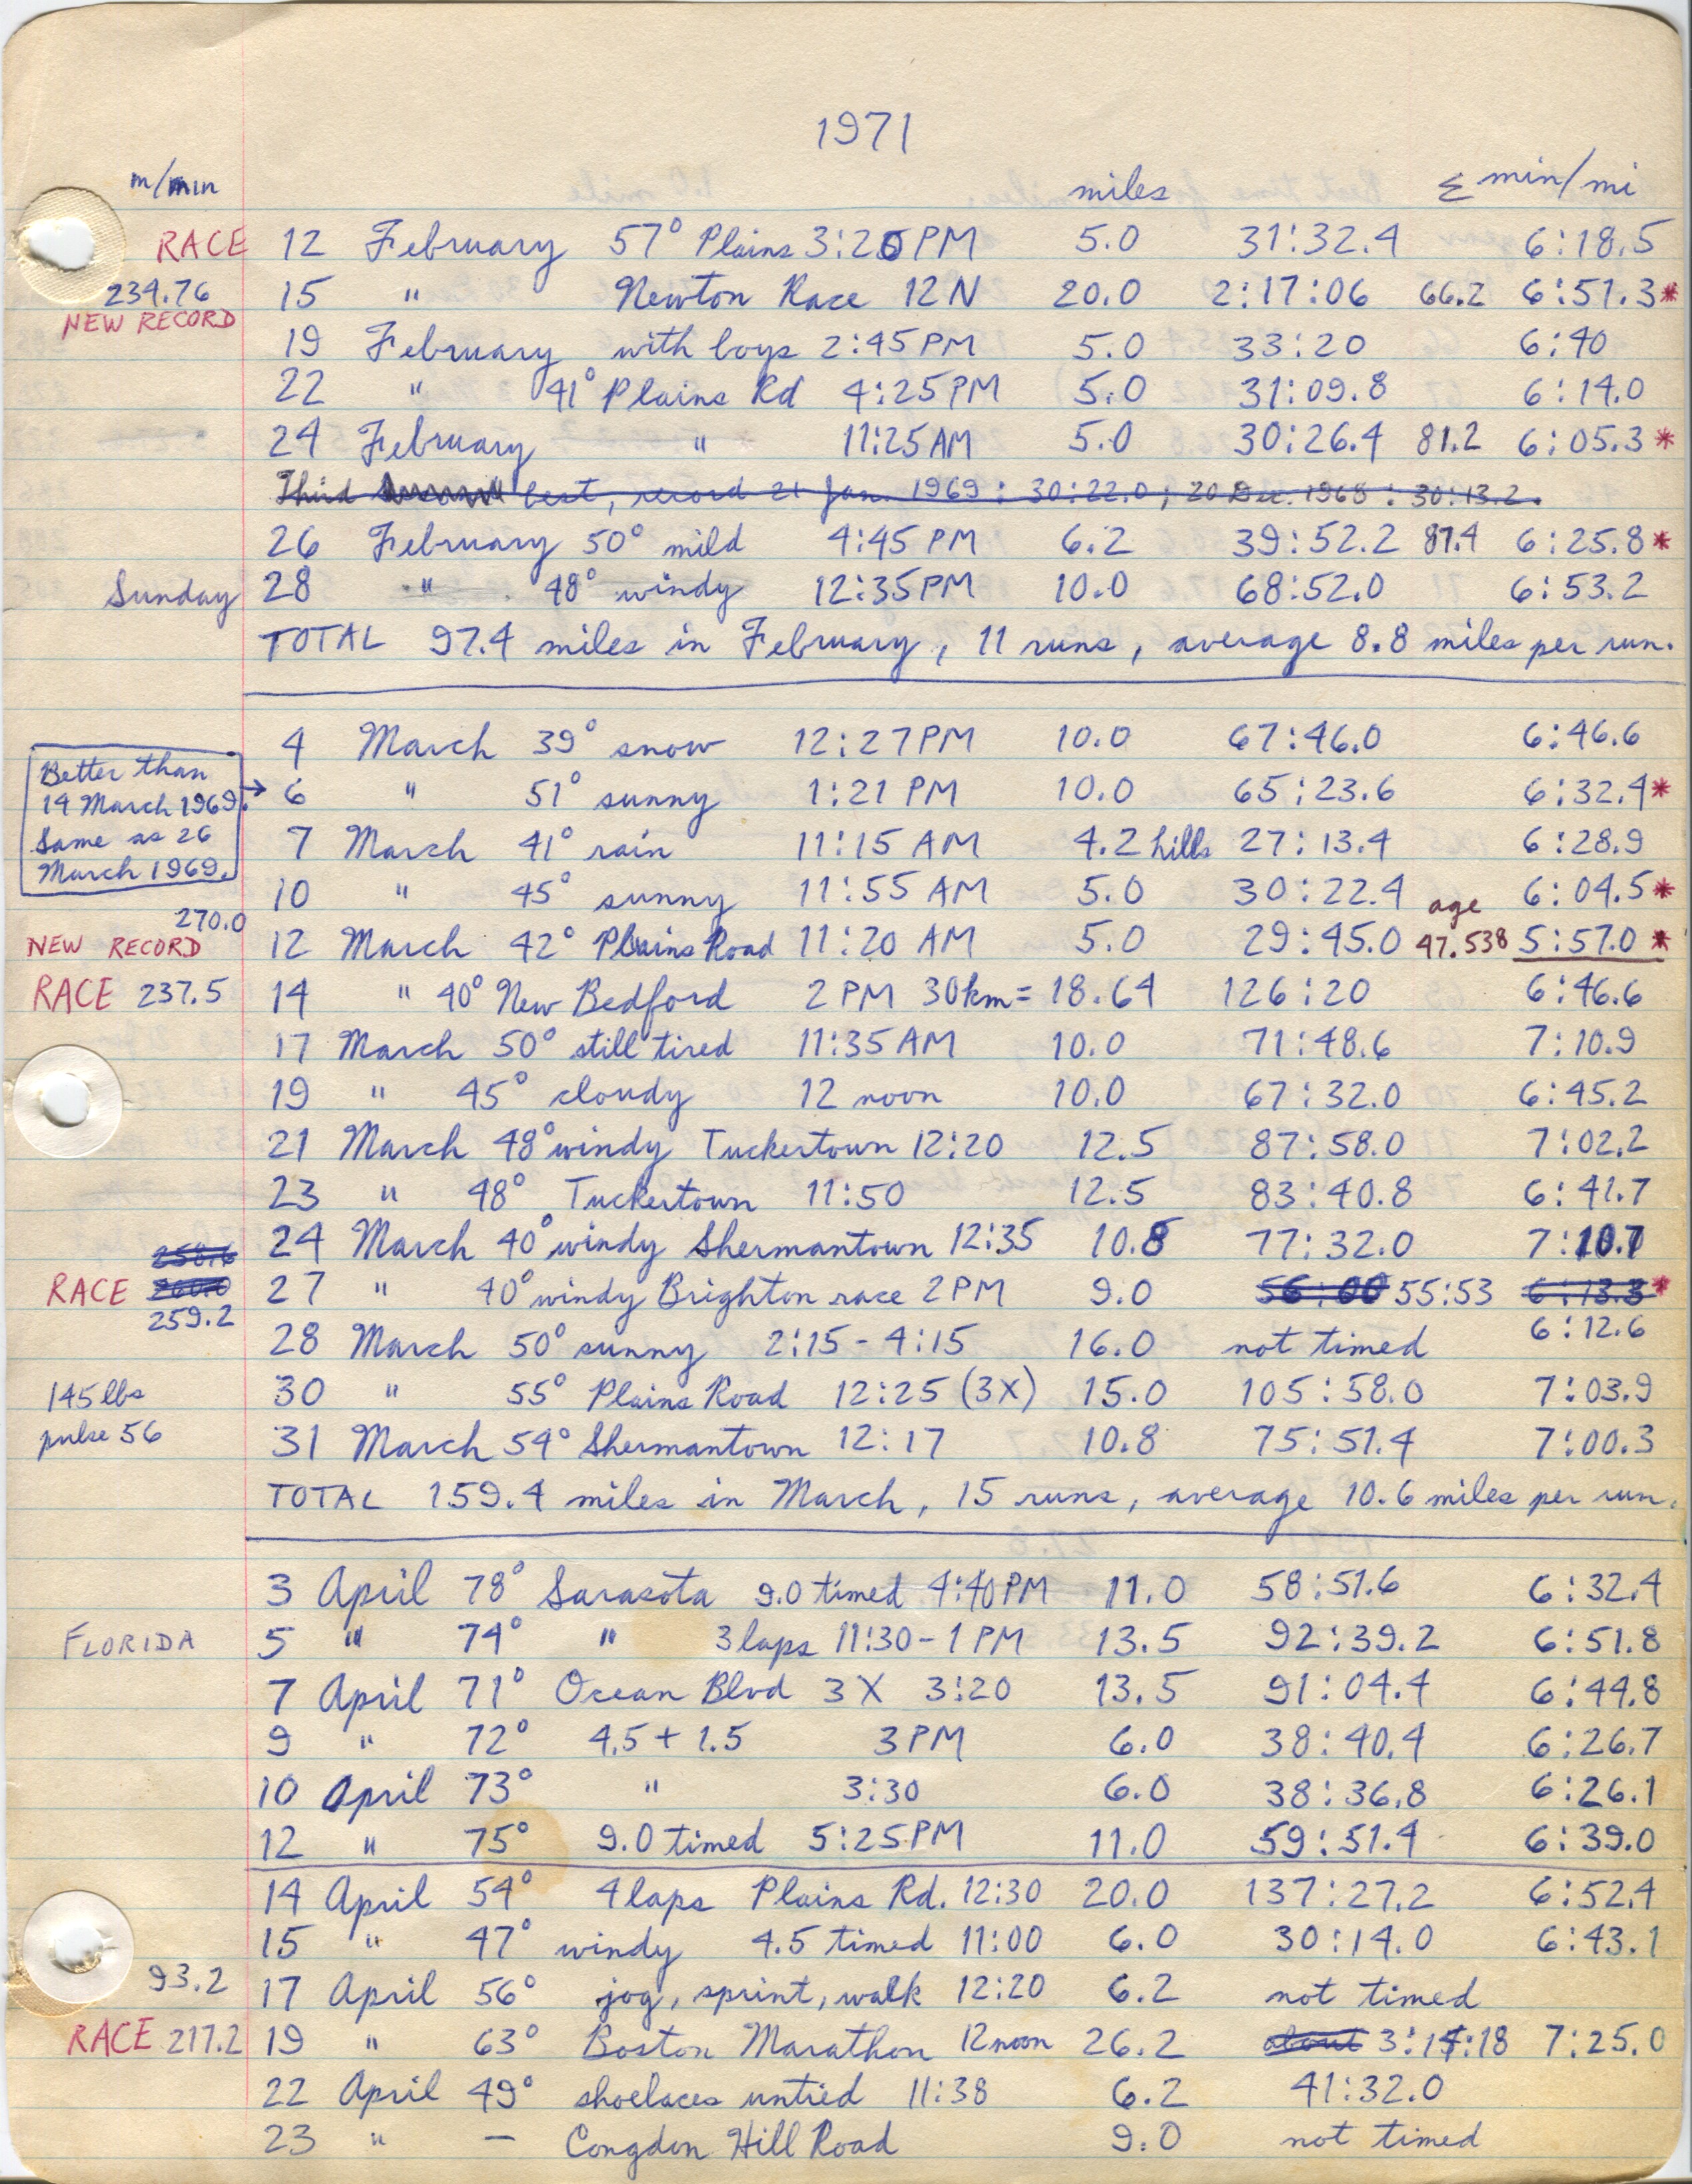 1971
m/min miles Σ min/mi
RACE 12 February 57° Plains 3:26 PM 5.0 31:32.4 6:18.5
234.76 15 " Newton Race 12 N 20.0 2:17:06 66.2 6:51.3*
NEW RECORD
19 February with boys 2:45 PM 5.0 33:20 6:40
22 " 41° Plains Rd 4:25 PM 5.0 31:09.8 6:14.0
24 February " 11:25 AM 5.0 30:26.4 81.2 6:05.3*
Third best, record 21 Jan. 1969: 30:22.0; 20 Dec. 1968: 30:13.2.
26 February 50° mild 4:45 PM 6.2 39:52.2 87.4 6:25.8*
Sunday 28 " 48° windy 12:35 PM 10.0 68:52.0 6:53.2
TOTAL 97.4 miles in February, 11 runs, average 8.8 miles per run.
4 March 39° snow 12:27 PM 10.0 67:46.0 6:46.6
Better than
14 March 1969.
Same as 26
March 1969.
→ 6 " 51° sunny 1:21 PM 10.0 65:23.6 6:32.4*
7 March 41° rain 11:15 AM 4.2 hills 27:13.4 6:28.9
10 " 45° sunny 11:55 AM 5.0 30:22.4 6:04.5*
270.0 age
NEW RECORD 12 March 42° Plains Road 11:20 AM 5.0 29:45.0 47.538 5:57.0*
RACE 237.5 14 " 40° New Bedford 2 PM 30km = 18.64 126:20 6:46.6
17 March 50° still tired 11:35 AM 10.0 71:48.6 7:10.9
19 " 45° cloudy 12 noon 10.0 67:32.0 6:45.2
21 March 48° windy Tuckertown 12:20 12.5 87:58.0 7:02.2
23 " 48° Tuckertown 11:50 12.5 83:40.8 6:41.7
258.6 24 March 40° windy Shermantown 12:35 10.8 77:32.0 7:10.7
RACE 260.0 27 " 40° windy Brighton race 2 PM 9.0 56:00 55:53 6:13.3*
259.2 6:12.6
28 March 50° sunny 2:15-4:15 16.0 not timed
145 lbs 30 " 55° Plains Road 12:25 (3X) 15.0 105:58.0 7:03.9
pulse 56 31 March 54° Shermantown 12:17 10.8 75:51.4 7:00.3
TOTAL 159.4 miles in March, 15 runs, average 10.6 miles per run.
3 April 78° Sarasota 9.0 timed 4:40 PM 11.0 58:51.6 6:32.4
FLORIDA 5 " 74° " 3 laps 11:30-1 PM 13.5 92:39.2 6:51.8
7 April 71° Ocean Blvd 3X 3:20 13.5 91:04.4 6:44.8
9 " 72° 4.5 + 1.5 3 PM 6.0 38:40.4 6:26.7
10 April 73° " 3:30 6.0 38:36.8 6:26.1
12 " 75° 9.0 timed 5:25 PM 11.0 59:51.4 6:39.0
14 April 54° 4 laps Plains Rd. 12:30 20.0 137:27.2 6:52.4
15 " 47° windy 4.5 timed 11:00 6.0 30:14.0 6:43.1
93.2 17 April 56° jog, sprint, walk 12:20 6.2 not timed
RACE 217.2 19 " 63° Boston Marathon 12 noon 26.2 about 3:14:18 7:25.0
22 April 49° shoelaces untied 11:38 6.2 41:32.0
23 " — Congdon Hill Road 9.0 not timed